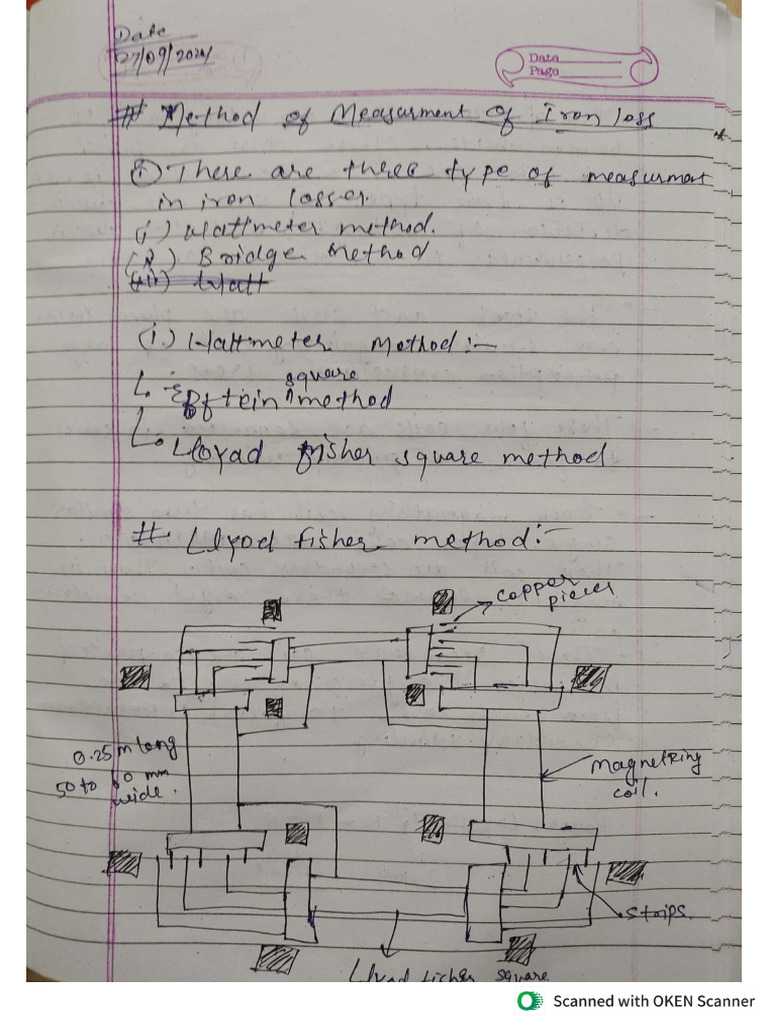 Date
27/09/2024
Data
Page
# Method of Measurment of Iron loss
① There are three type of measurment
in iron losses.
(i) Wattmeter method.
(ii) Bridge Method
(iii) Watt
(i) Wattmeter Method:-
square
method
Lloyad fisher square method
# Llyod fisher method:-
copper
pieces
0.25 m long
50 to 60 mm
wide.
magnetizing
coil.
strips.
Llyod fisher square
Scanned with OKEN Scanner